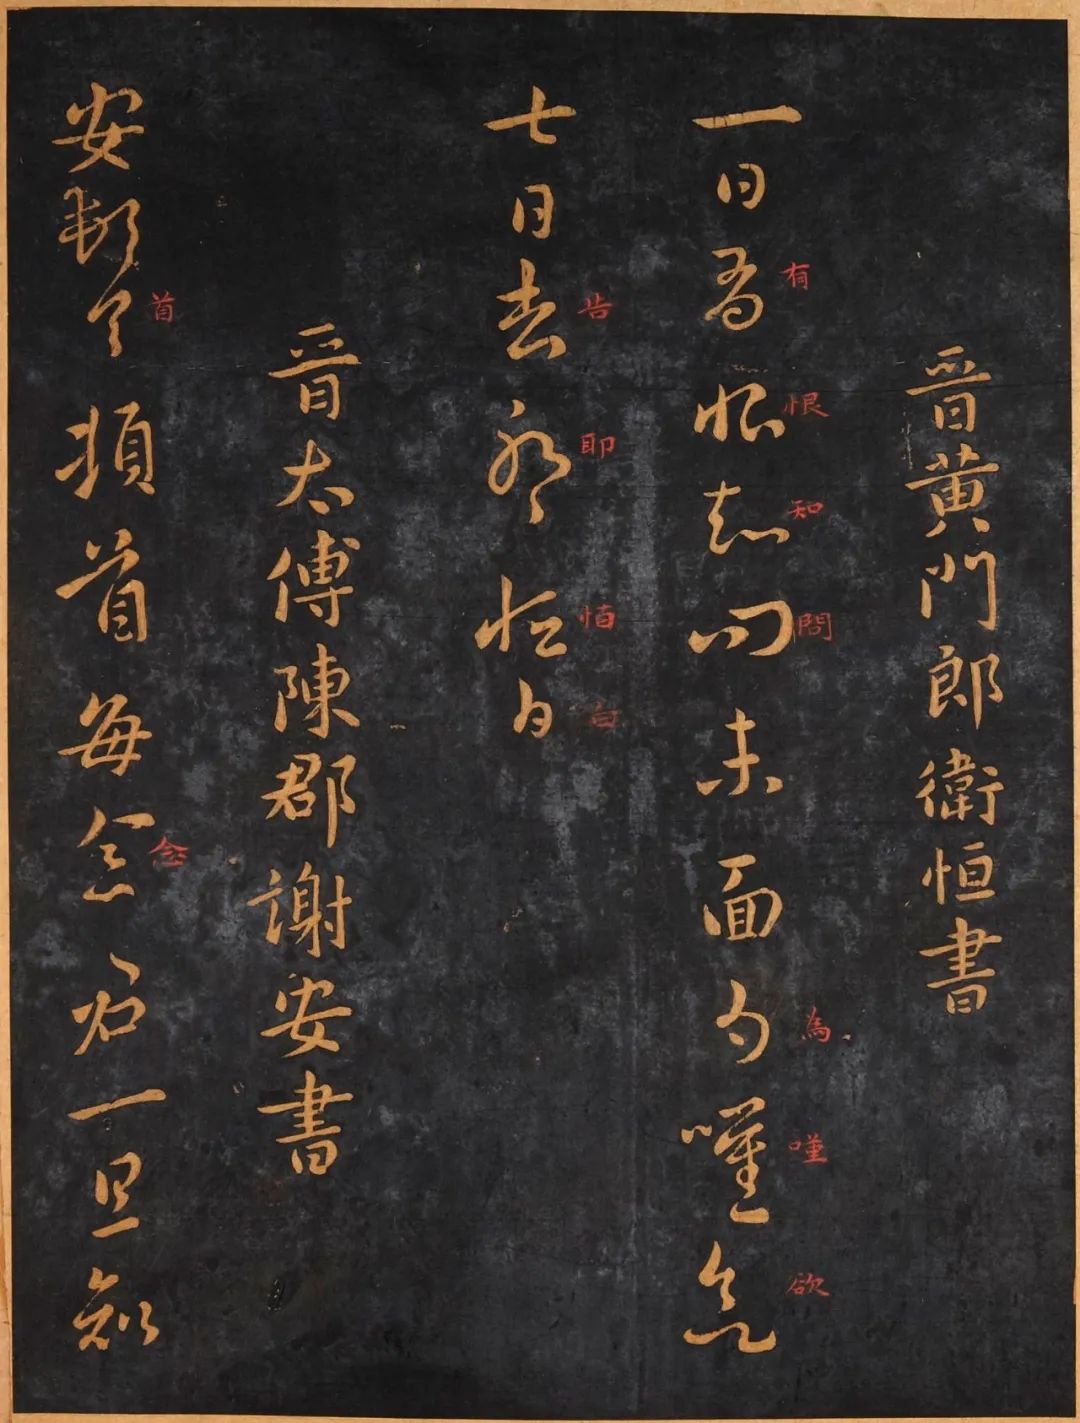 晉黃門郎衛恒書
有恨知問為欲
一日有恨知問未面為欲
告即白
七日告即恒白
晉太傅陳郡謝安書
首念
安頓首頓首每念君一旦知